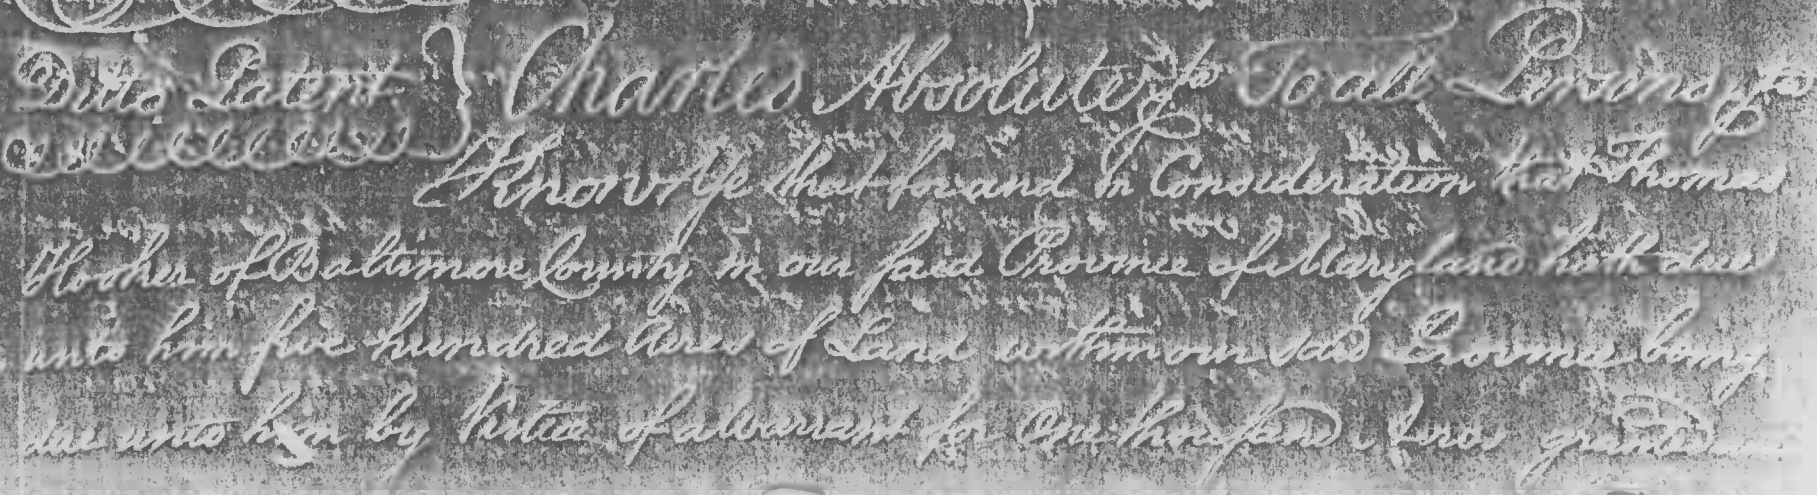 Ditto Patent } Charles Absolute &c To all Persons &c
Know Ye that for and in Consideration that Thomas
Hooker of Baltimore County in our said Province of Maryland hath due
unto him five hundred Acres of Land within our said Province being
due unto him by Virtue of a Warrant for One thousand Acres granted